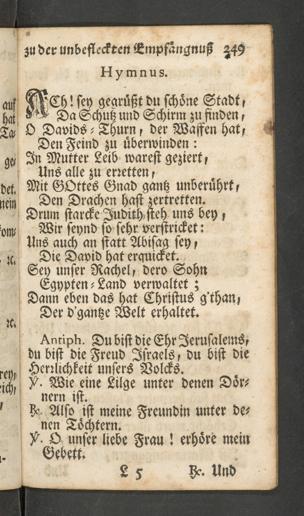 zu der unbefleckten Empfängnuß 249
Hymnus.
ACh! sey gegrüßt du schöne Stadt,
Da Schutz und Schirm zu finden,
O Davids-Thurn, der Waffen hat,
Den Feind zu überwinden:
In Mutter Leib warest geziert,
Uns alle zu erretten,
Mit GOttes Gnad gantz unberührt,
Den Drachen hast zertretten.
Drum starcke Judith steh uns bey,
Wir seynd so sehr verstricket:
Uns auch an statt Abisag sey,
Die David hat erquicket.
Sey unser Rachel, dero Sohn
Egypten-Land verwaltet;
Dann eben das hat Christus g'than,
Der d'gantze Welt erhaltet.
Antiph. Du bist die Ehr Jerusalems,
du bist die Freud Israels, du bist die
Herrlichkeit unsers Volcks.
℣. Wie eine Lilge unter denen Dör-
nern ist.
℟. Also ist meine Freundin unter de-
nen Töchtern.
℣. O unser liebe Frau! erhöre mein
Gebett.
L 5 ℟. Und